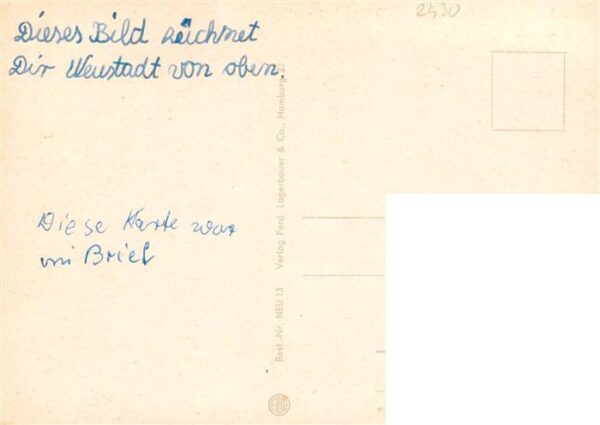 2430
Dieses Bild zeichnet
Dir Neustadt von oben.
Diese Karte war
im Brief
Best.-Nr. NEU 13 Verlag Ferd. Lagerbauer & Co., Hamburg